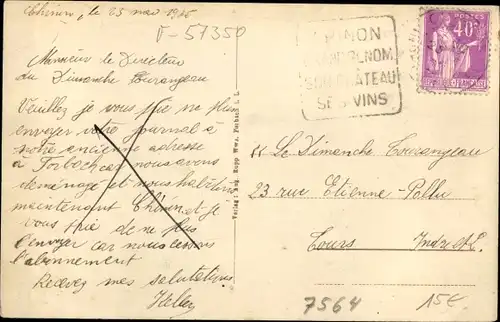 Chinon, le 25 mai 19
F-57350
Monsieur le Directeur
du Dimanche Tourangeau
Veuillez je vous prie ne plus
envoyer votre journal à
notre ancienne adresse
à Forbach car nous avons
déménagé et nous habitons
maintenant Chinon et je
vous prie de ne plus
l'envoyer car nous cessons
l'abonnement
Recevez mes salutations
Verlag: Aug. Hopp Wwe. Forbach i. L.
CHINON
GRAND RENOM
SON CHATEAU
SES VINS
POSTES
40c
Le Dimanche Tourangeau
23 rue Etienne-Pallu
Tours Indre et L.
7564
15€